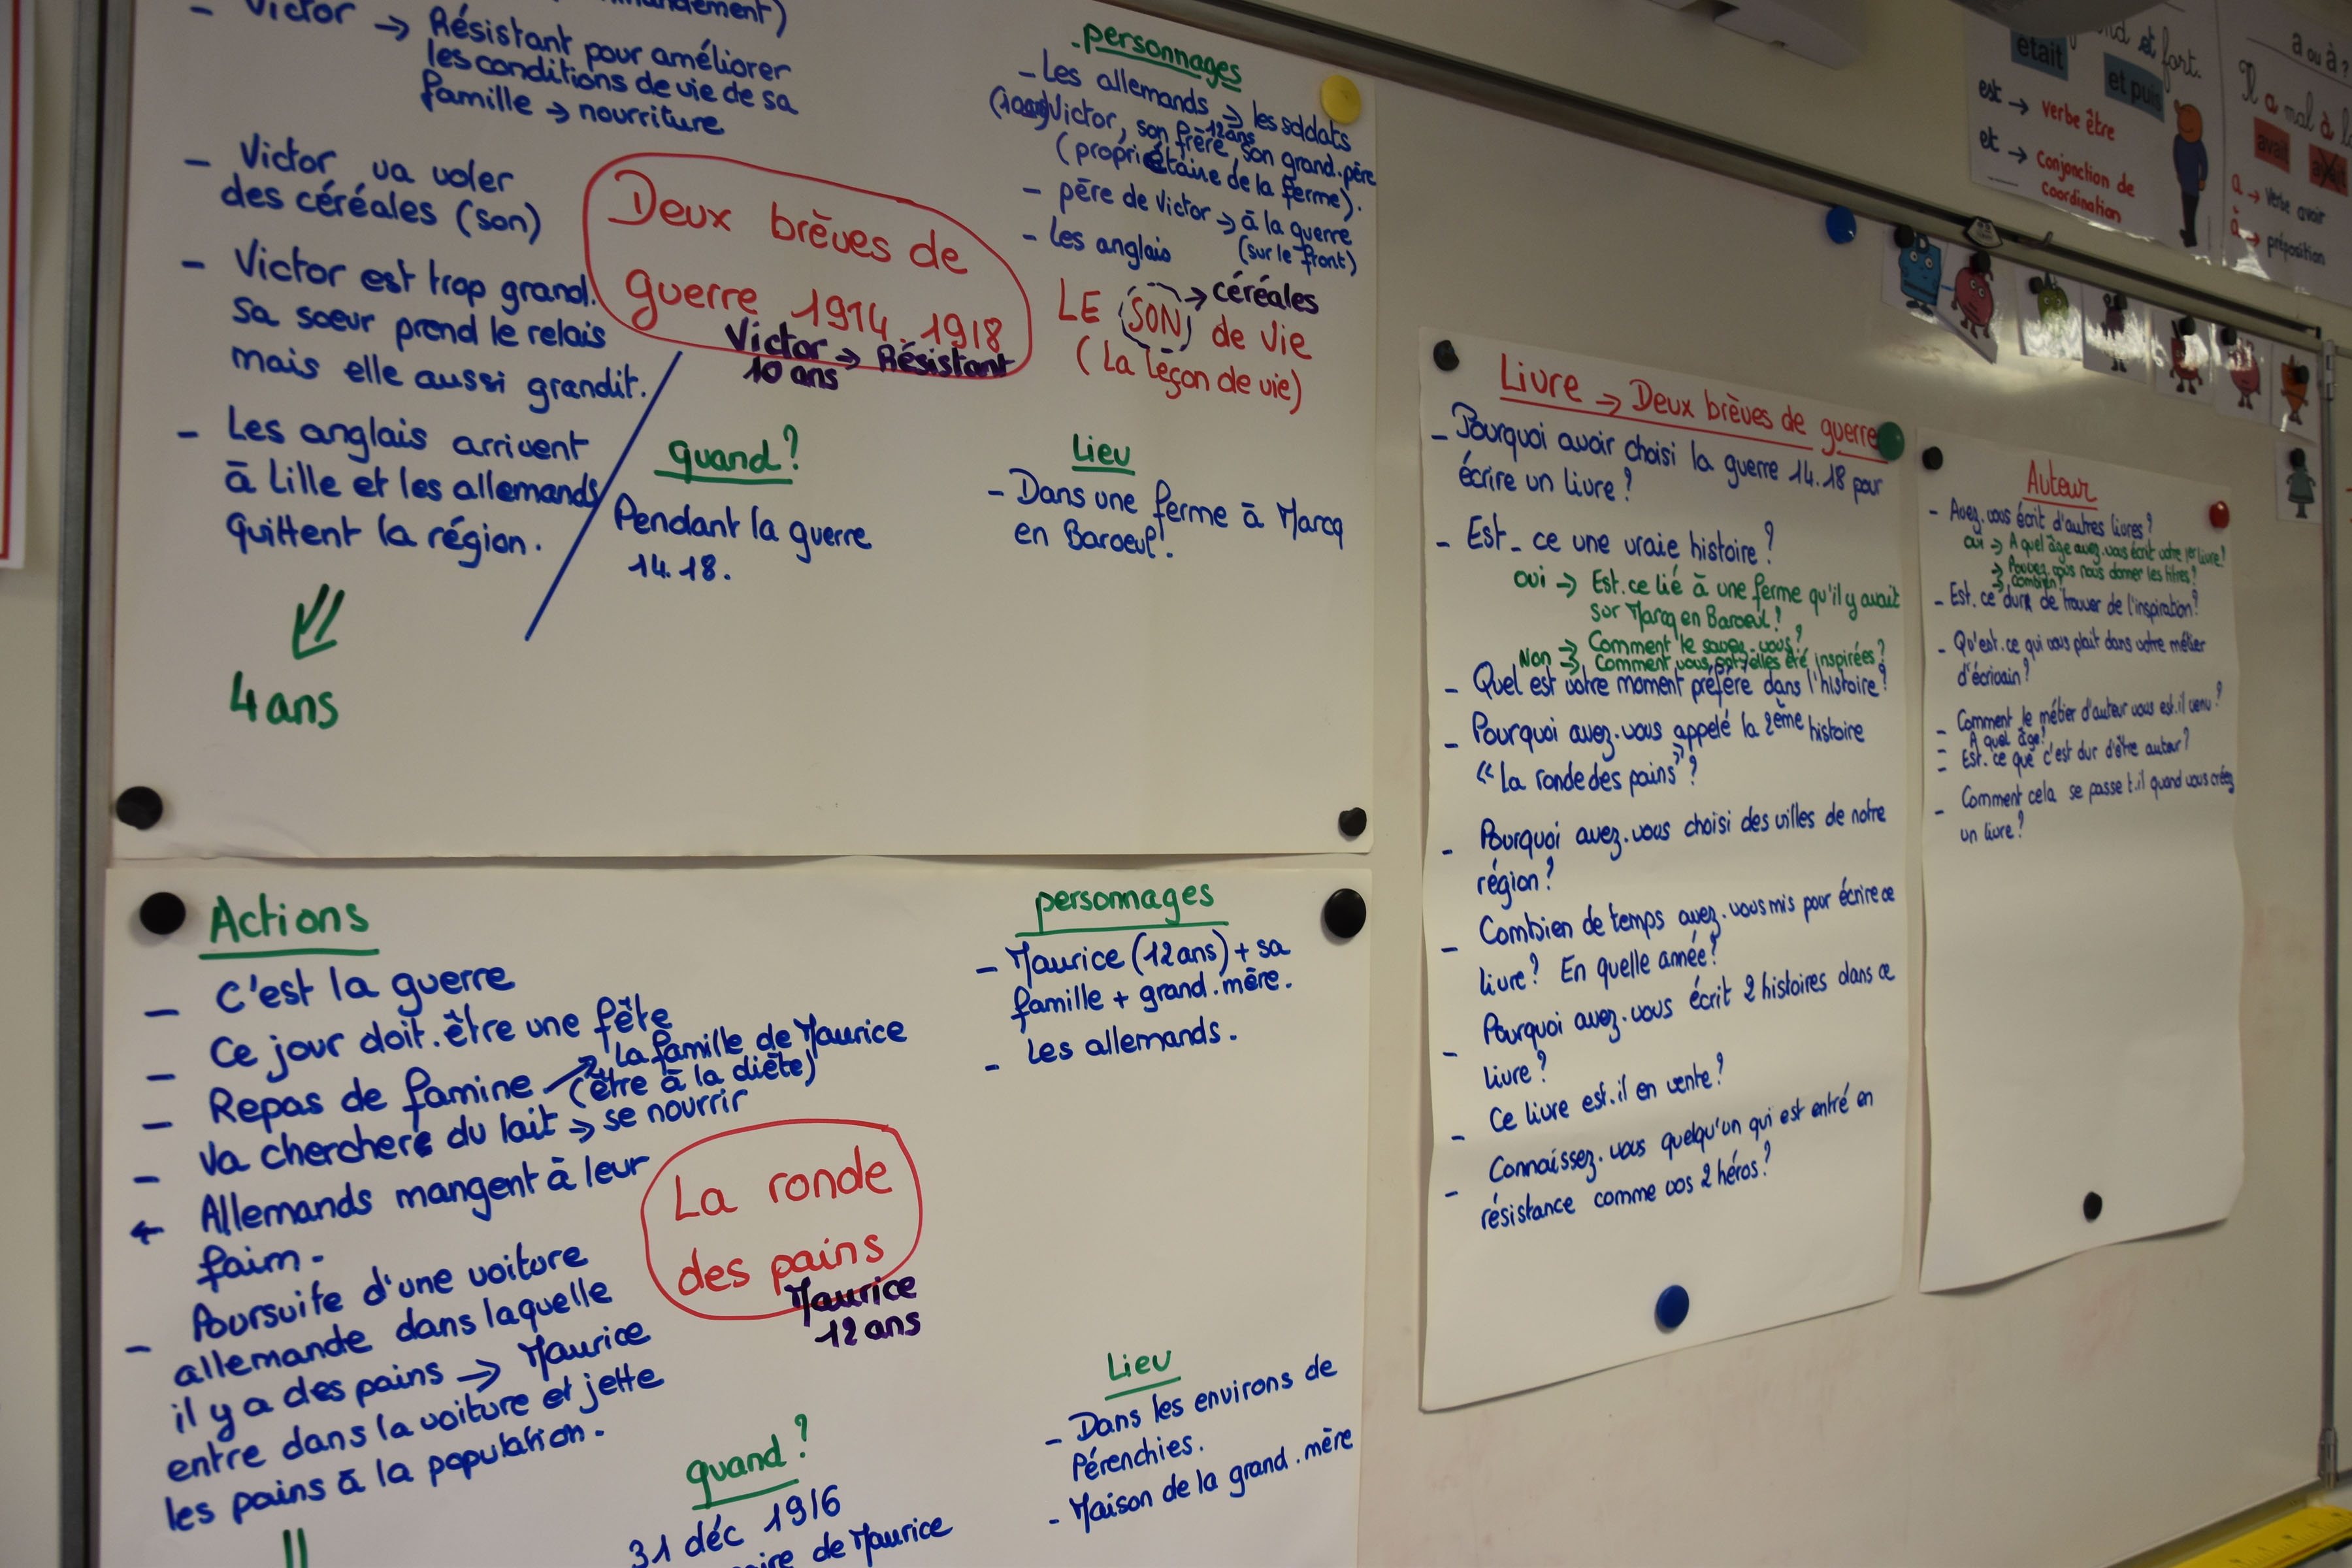 Victor → Résistant pour améliorer
les conditions de vie de sa
famille → nourriture
- Victor va voler
des céréales (son)
- Victor est trop grand.
Sa sœur prend le relais
mais elle aussi grandit.
- Les anglais arrivent
à Lille et les allemands
quittent la région.
4 ans
Deux brèves de
guerre 1914.1918
Victor → Résistant
10 ans
quand?
Pendant la guerre
14.18.
personnages
- Les allemands → les soldats
Victor, son frère, son grand.père
12 ans
(propriétaire de la ferme).
- père de Victor → à la guerre
(sur le front)
- Les anglais
LE (SON) → céréales
de vie
(La leçon de vie)
Lieu
- Dans une ferme à Marcq
en Baroeul.
Actions
- C'est la guerre
- Ce jour doit.être une fête
- Repas de famine → la famille de Maurice
(être à la diète)
- Va chercher du lait → se nourrir
Allemands mangent à leur
faim.
- Poursuite d'une voiture
allemande dans laquelle
il y a des pains → Maurice
entre dans la voiture et jette
les pains à la population.
La ronde
des pains
Maurice
12 ans
quand?
31 déc 1916
de Maurice
personnages
- Maurice (12 ans) + sa
famille + grand.mère.
- Les allemands.
Lieu
- Dans les environs de
Pérenchies.
- Maison de la grand.mère
Livre → Deux brèves de guerre
- Pourquoi avoir choisi la guerre 14.18 pour
écrire un livre?
- Est-ce une vraie histoire?
oui → Est.ce lié à une ferme qu'il y avait
sur Marcq en Baroeul?
→ Comment le savez.vous?
Non → Comment vous ont elles été inspirées?
- Quel est votre moment préféré dans l'histoire?
- Pourquoi avez.vous appelé la 2ème histoire
"la ronde des pains"?
- Pourquoi avez.vous choisi des villes de notre
région?
- Combien de temps avez.vous mis pour écrire ce
livre? En quelle année?
- Pourquoi avez.vous écrit 2 histoires dans ce
livre?
- Ce livre est.il en vente?
- Connaissez.vous quelqu'un qui est entré en
résistance comme vos 2 héros?
Auteur
- Avez.vous écrit d'autres livres?
oui → A quel âge avez.vous écrit votre 1er livre?
→ Pouvez.vous nous donner les titres?
→ Combien?
- Est.ce dur de trouver de l'inspiration?
- Qu'est.ce qui vous plaît dans votre métier
d'écrivain?
- Comment le métier d'auteur vous est.il venu?
- A quel âge?
- Est.ce que c'est dur d'être auteur?
- Comment cela se passe t.il quand vous créez
un livre?
et fort.
était
et puis
est → verbe être
et → Conjonction de
coordination
a ou à?
Il a mal à
avait
avait
a → Verbe avoir
à → préposition